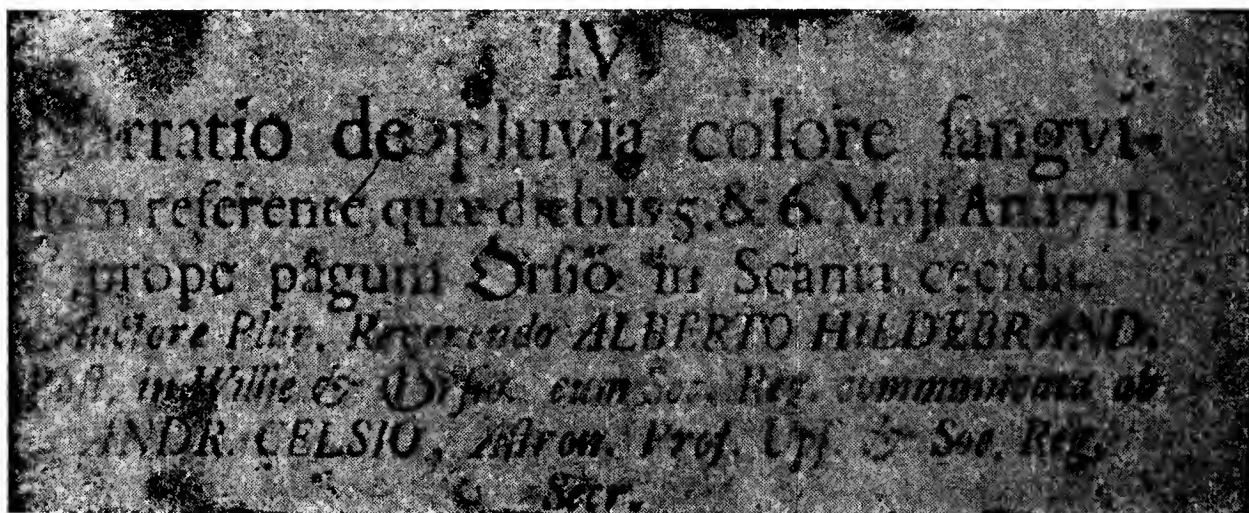 IV
de pluvia colore ſangvi-
referente, quæ diebus 5. & 6. Maji
prope pagum Orſiö in Scania cecidit.
Auctore Plur. Reverendo ALBERTO HILDEBRAND.
Paſt. in Willie & cum Soc. Reg. communicata ab
ANDR. CELSIO, Aſtron. Prof. Upſ. & Soc. Reg.
Secr.